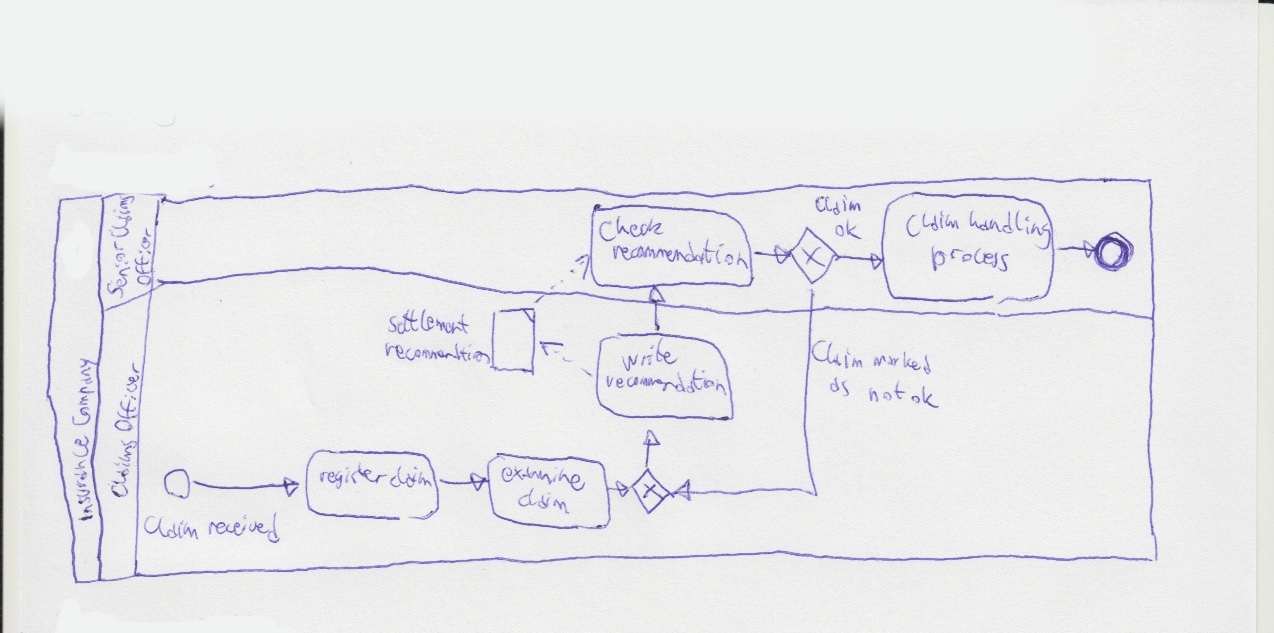 Insurance Company
Senior Claims
Officer
Claims Officer
Check
recommendation
Claim
ok
Claim handling
process
settlement
recommendation
write
recommendation
Claim marked
as not ok
Claim received
register claim
examine
claim